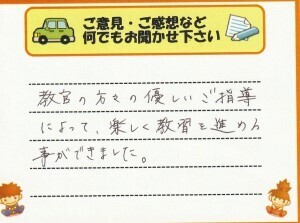 ご意見・ご感想など
何でもお聞かせ下さい
教官の方々の優しいご指導
によって、楽しく教習を進める
事ができました。